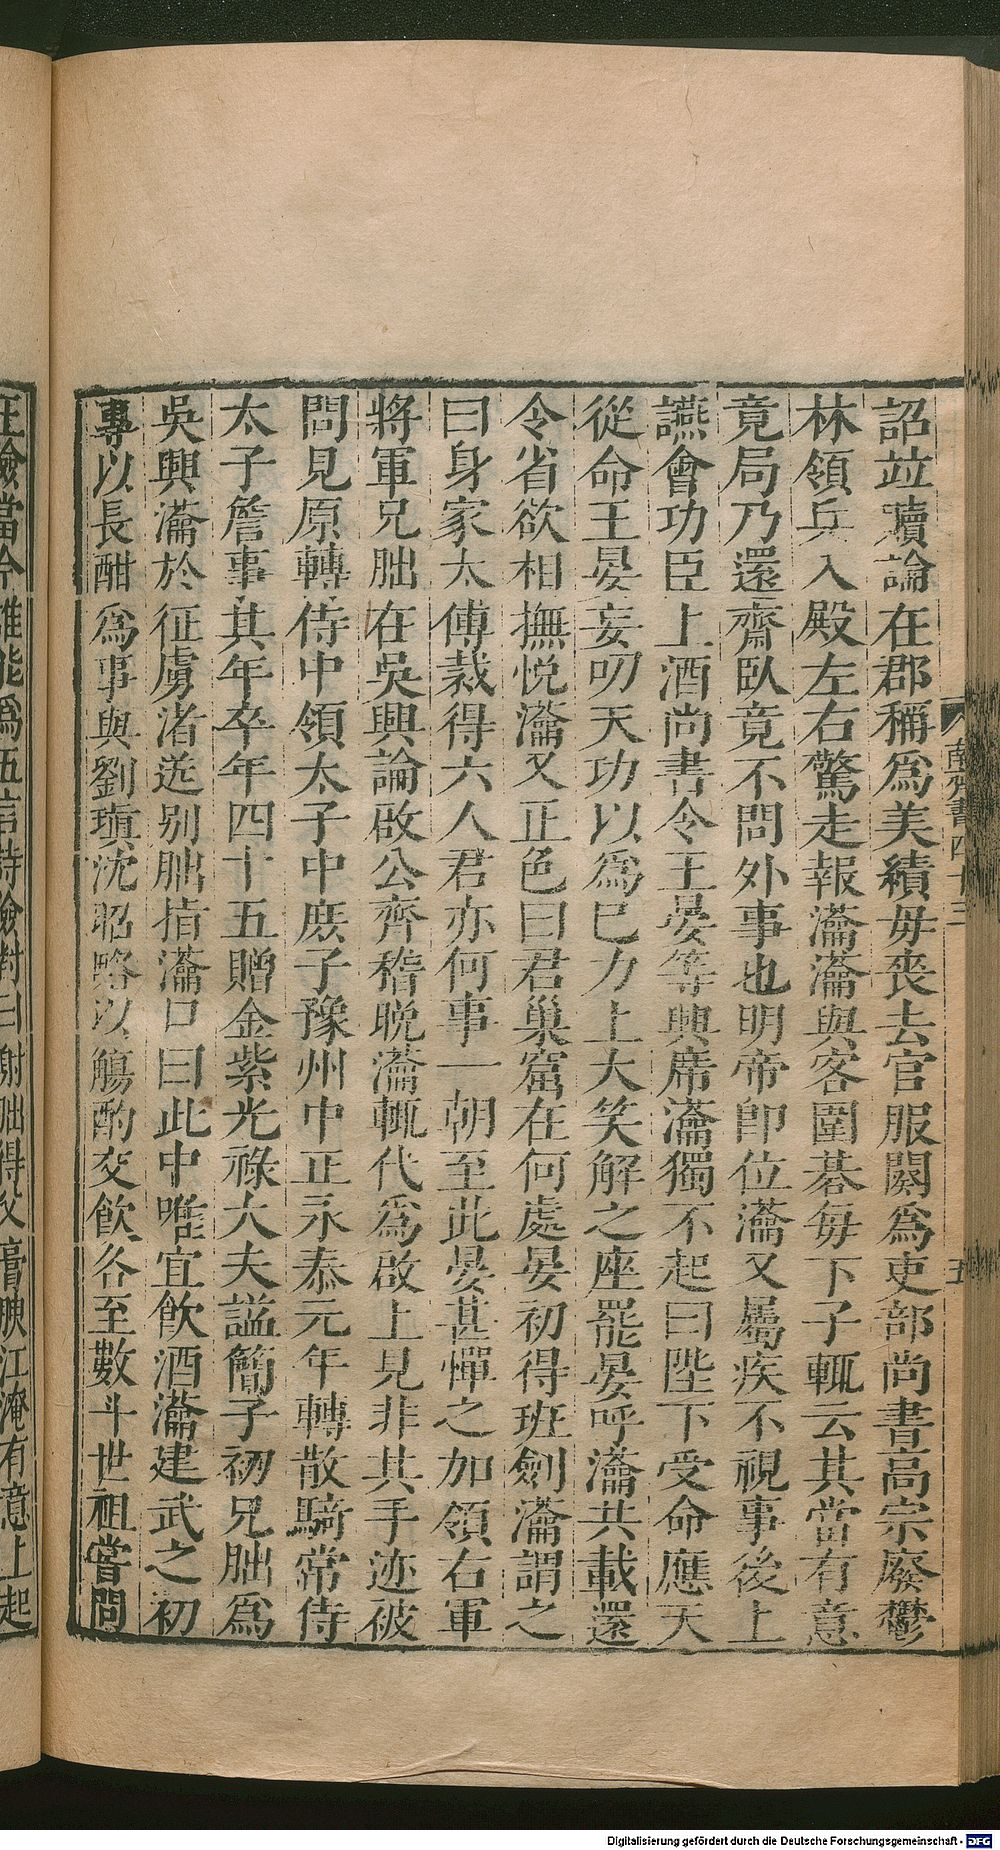 詔竝贖論在郡稱爲美績毋喪去官服闋爲吏部尚書高宗廢鬱
林領兵入殿左右驚走報瀹瀹與客圍碁每下子輒云其當有意
竟局乃還齋臥竟不問外事也明帝即位瀹又屬疾不視事後上
讌會功臣上酒尚書令王晏等興席瀹獨不起曰陛下受命應天
從命王晏妄叨天功以爲巳力上大笑解之座罷晏呼瀹共載還
令省欲相撫悅瀹又正色曰君巢窟在何處晏初得班劍瀹謂之
曰身家太傅裁得六人君亦何事一朝至此晏甚憚之加領右軍
將軍兄朏在吳興論啟公齊稽晚瀹輒代爲啟上見非其手迹被
問見原轉侍中領太子中庶子豫州中正永泰元年轉散騎常侍
太子詹事其年卒年四十五贈金紫光祿大夫謚簡子初兄朏爲
吳興瀹於征虜渚送别朏指瀹口曰此中唯宜飮酒瀹建武之初
專以長酣爲事與劉瑱沈昭略以觴酌交飮各至數斗世祖嘗問
王儉當今誰能爲五言詩儉對曰謝朏得父膏腴江淹有意上起
南齊書四十三
五
Digitalisierung gefördert durch die Deutsche Forschungsgemeinschaft - DFG